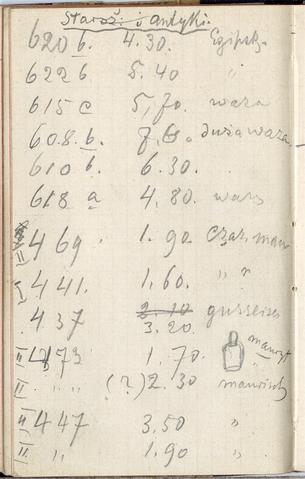 Starož. i antyki.
620 b. 4.30. Egipsk.
622 b. 5.40 "
615 c 5,70. waza
608. b. 7, duża waza
610 b. 6.30. .
618 a 4.80. waza
II 469 . 1.90. Czar.
I 441. 1.60. " "
437 2.10
3.20.
II 1.70.
II " " (?) 2.30 maurisch
II 447 3.50 "
II " 1.90 "